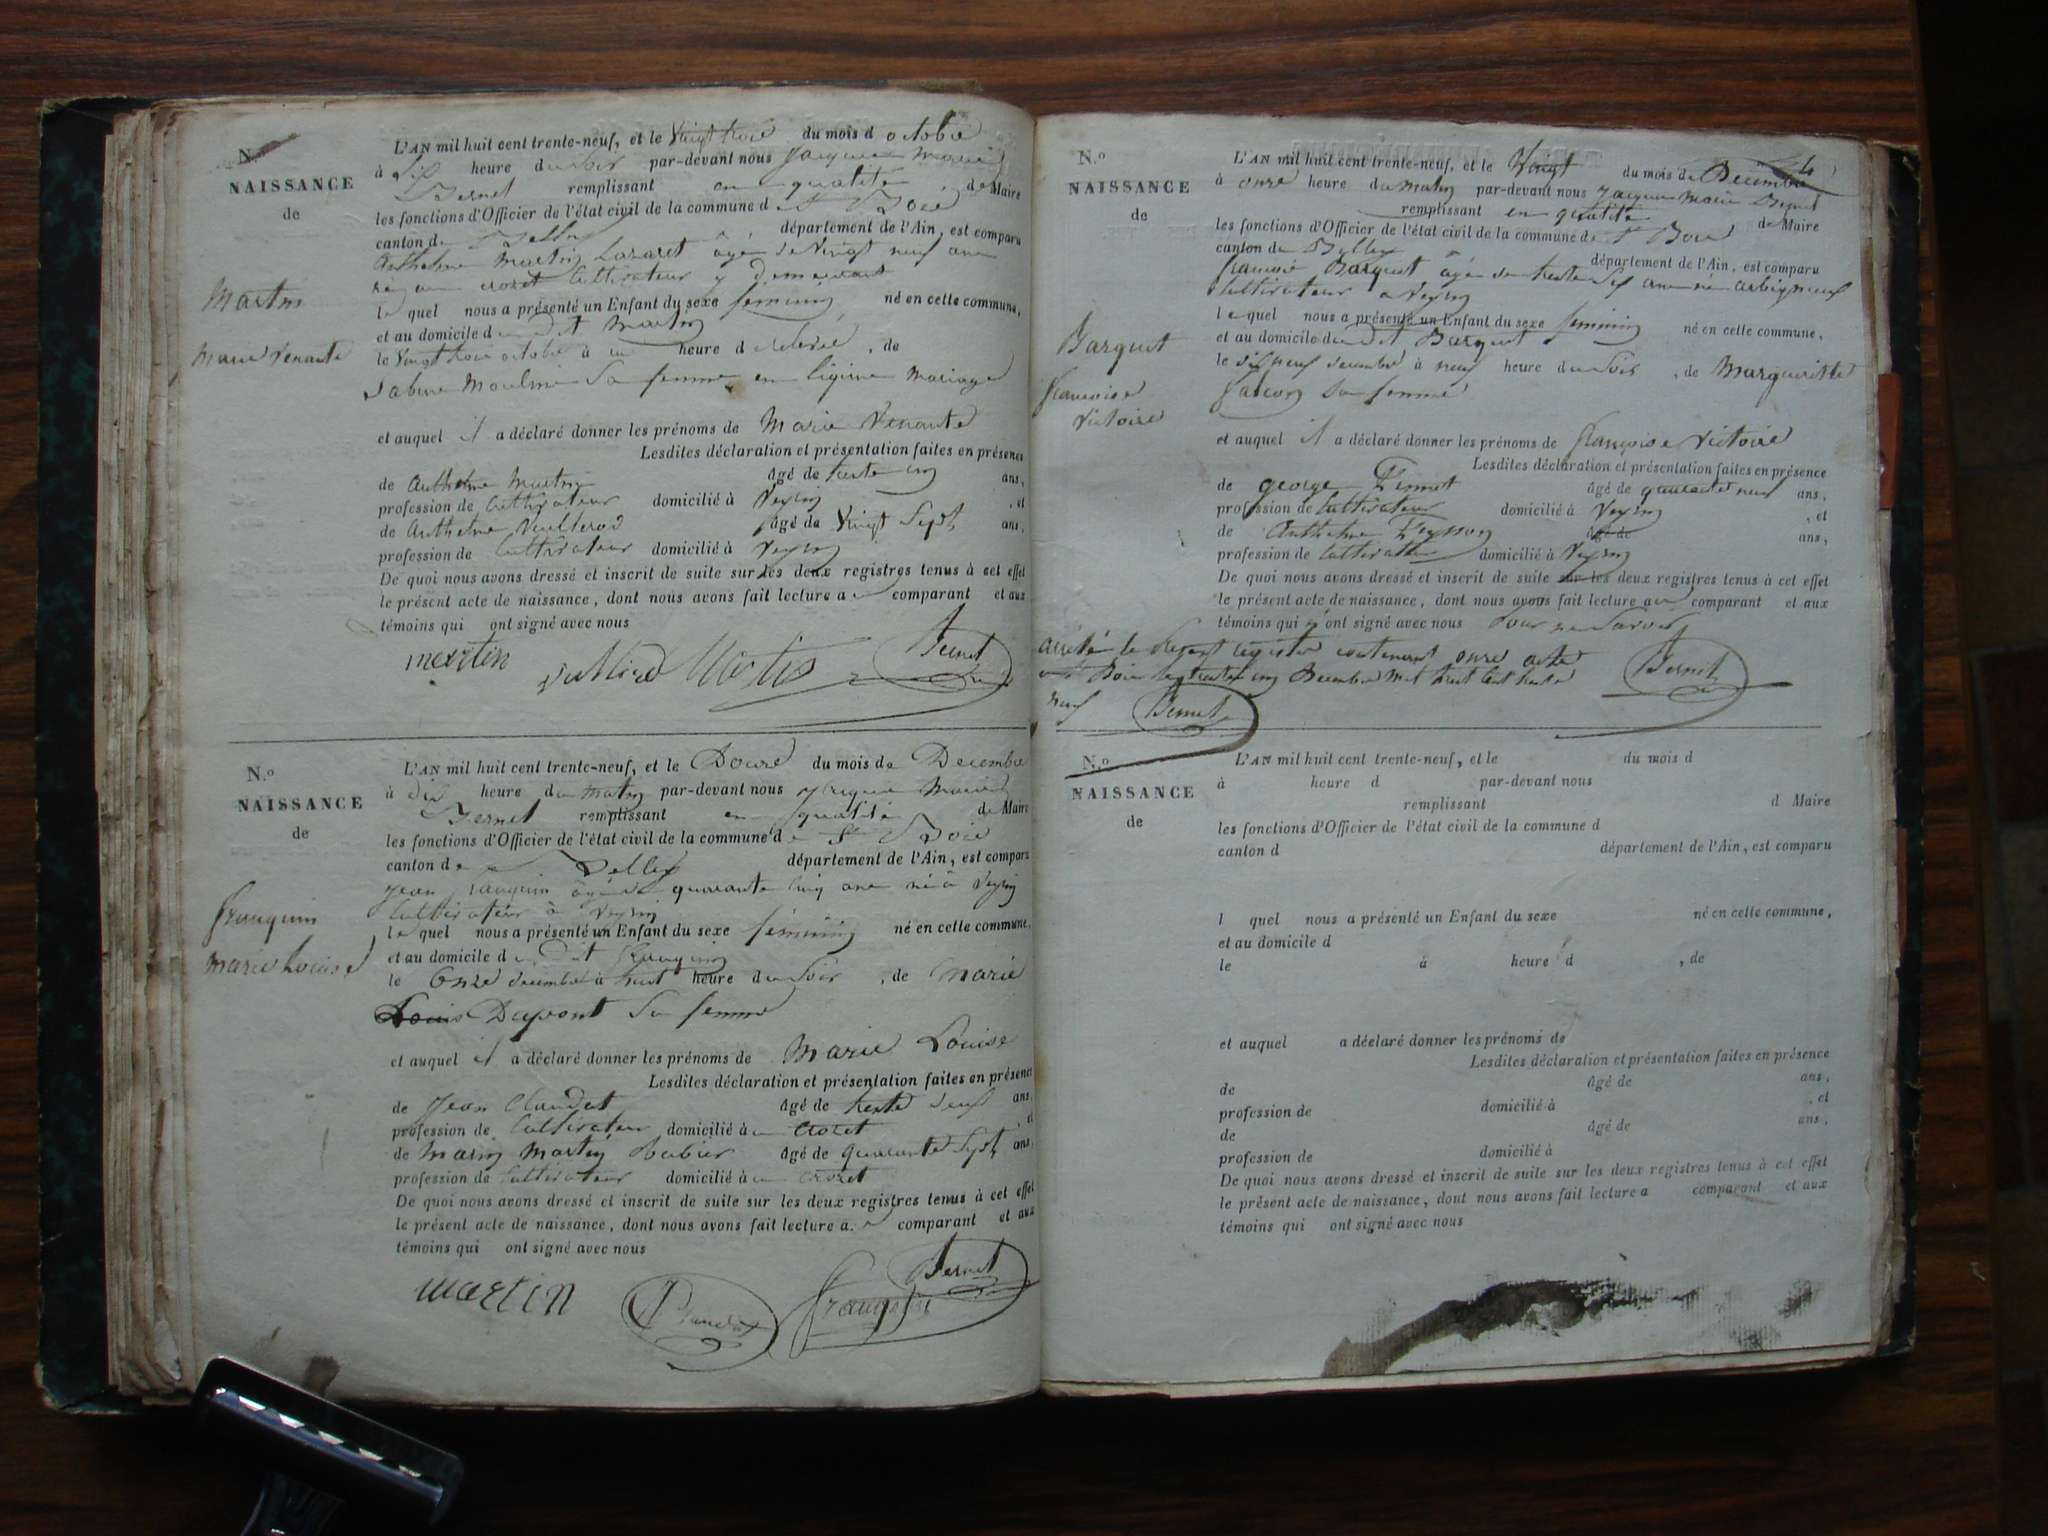 N.º
NAISSANCE
de
Martin
Marie Venante
L'AN mil huit cent trente-neuf, et le Vingt trois du mois d octobre
à Six heure du Soir par-devant nous Jacques Marie
Bernet remplissant en qualité de Maire
les fonctions d'Officier de l'état civil de la commune de St Bois
canton de Belley département de l'Ain, est comparu
Anthelme Martin Lazaret âgé de Vingt neuf ans
né au crozet Cultivateur y demeurant
le quel nous a présenté un Enfant du sexe féminin né en cette commune,
et au domicile du dit Martin
le Vingt trois octobre à une heure d , de
Sabine Moulin Sa femme en légime mariage
et auquel il a déclaré donner les prénoms de Marie Venante
Lesdites déclaration et présentation faites en présence
de Anthelme Martin âgé de trente cinq ans,
profession de Cultivateur domicilié à Veyrin , et
de Anthelme Veullerod âgé de Vingt Sept ans,
profession de Cultivateur domicilié à Veyrin
De quoi nous avons dressé et inscrit de suite sur les deux registres tenus à cet effet
le présent acte de naissance, dont nous avons fait lecture au comparant et aux
témoins qui ont signé avec nous
mertin Martin Bernet
N.º
NAISSANCE
de
françuin
Marie Louise
L'AN mil huit cent trente-neuf, et le Douze du mois de Décembre
à dix heure du matin par-devant nous Jacques Marie
Bernet remplissant en qualité de Maire
les fonctions d'Officier de l'état civil de la commune de St Bois
canton de Belley département de l'Ain, est comparu
Jean françuin âgé de quarante cinq ans né à Veyrin
Cultivateur à Veyrin
le quel nous a présenté un Enfant du sexe féminin né en cette commune,
et au domicile du dit françuin
le Onze décembre à huit heure du Soir , de Marie
Louis Dupont Sa femme
et auquel il a déclaré donner les prénoms de Marie Louise
Lesdites déclaration et présentation faites en présence
de Jean Claudet âgé de trente neuf ans,
profession de Cultivateur domicilié au crozet , et
de Marin Martin âgé de quarante Sept ans,
profession de Cultivateur domicilié au crozet
De quoi nous avons dressé et inscrit de suite sur les deux registres tenus à cet effet
le présent acte de naissance, dont nous avons fait lecture au comparant et aux
témoins qui ont signé avec nous
martin Claudet françuin Bernet
4
N.º
NAISSANCE
de
Barquet
françoise
Victoire
L'AN mil huit cent trente-neuf, et le Vingt du mois de Décembre
à onze heure du matin par-devant nous Jacques Marie Bernet
remplissant en qualité de Maire
les fonctions d'Officier de l'état civil de la commune de St Bois
canton de Belley département de l'Ain, est comparu
françois Barquet âgé de trente Six ans né arbigneux
Cultivateur a Veyrin
le quel nous a présenté un Enfant du sexe féminin né en cette commune,
et au domicile du dit Barquet
le dix neuf décembre à neuf heure du Soir , de Marguerite
falcoz Sa femme
et auquel il a déclaré donner les prénoms de françoise Victoire
Lesdites déclaration et présentation faites en présence
de george âgé de quarante neuf ans,
profession de Cultivateur domicilié à Veyrin , et
de Anthelme Peysson âgé de ans,
profession de Cultivateur domicilié à Veyrin
De quoi nous avons dressé et inscrit de suite sur les deux registres tenus à cet effet
le présent acte de naissance, dont nous avons fait lecture au comparant et aux
témoins qui n'ont signé avec nous pour ne Savoir
arrêté le présent registre contenant onze acte
Bois le trente un Décembre mil huit cent trente
neuf Bernet Bernet
N.º
NAISSANCE
de
L'AN mil huit cent trente-neuf, et le du mois d
à heure d par-devant nous
remplissant d Maire
les fonctions d'Officier de l'état civil de la commune d
canton d département de l'Ain, est comparu
l quel nous a présenté un Enfant du sexe né en cette commune,
et au domicile d
le à heure d , de
et auquel a déclaré donner les prénoms de
Lesdites déclaration et présentation faites en présence
de âgé de ans,
profession de domicilié à , et
de âgé de ans,
profession de domicilié à
De quoi nous avons dressé et inscrit de suite sur les deux registres tenus à cet effet
le présent acte de naissance, dont nous avons fait lecture a comparant et aux
témoins qui ont signé avec nous